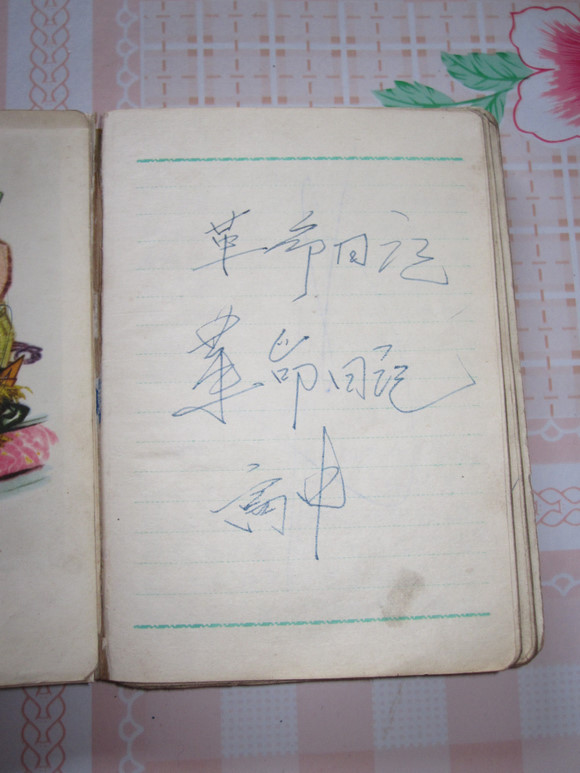 革命日记
革命日记
高中